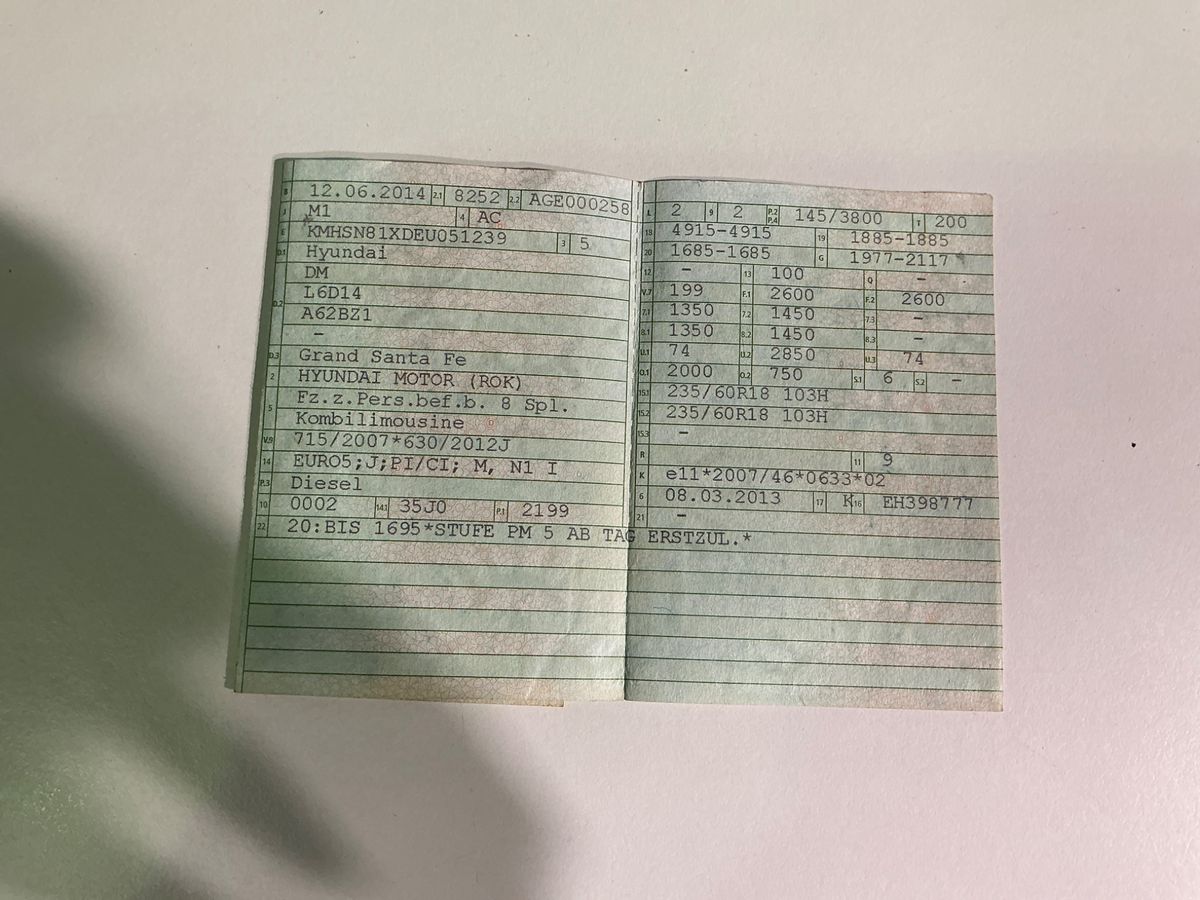 B 12.06.2014 2.1 8252 2.2 AGE000258
J M1 4 AC
E KMHSN81XDEU051239 3 5
D.1 Hyundai
DM
D.2 L6D14
A62BZ1
–
D.3 Grand Santa Fe
2 HYUNDAI MOTOR (ROK)
5 Fz.z.Pers.bef.b. 8 Spl.
Kombilimousine
V.9 715/2007*630/2012J
14 EURO5;J;PI/CI; M, N1 I
P.3 Diesel
10 0002 14.1 35J0 P.1 2199
22 20:BIS 1695*STUFE PM 5 AB TAG ERSTZUL.*
L 2 9 2 P.2 P.4 145/3800 T 200
18 4915-4915 19 1885-1885
20 1685-1685 G 1977-2117
12 – 13 100 Q –
V.7 199 F.1 2600 F.2 2600
7.1 1350 7.2 1450 7.3 –
8.1 1350 8.2 1450 8.3 –
U.1 74 U.2 2850 U.3 74
O.1 2000 O.2 750 S.1 6 S.2 –
15.1 235/60R18 103H
15.2 235/60R18 103H
15.3 –
R 11 9
K e11*2007/46*0633*02
6 08.03.2013 17 K 16 EH398777
21 –